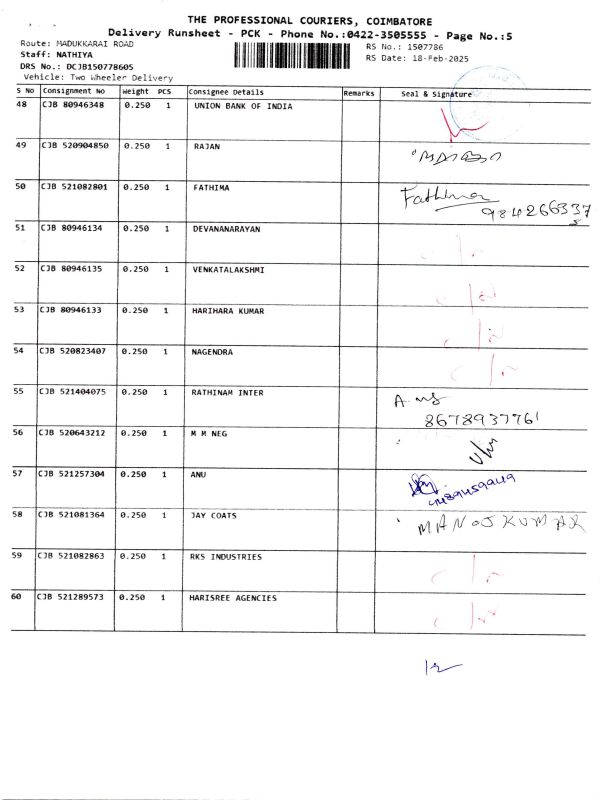 THE PROFESSIONAL COURIERS, COIMBATORE
Delivery Runsheet - PCK - Phone No.:0422-3505555 - Page No.:5
Route: MADUKKARAI ROAD
RS No.: 1507786
Staff: NATHIYA
RS Date: 18-Feb-2025
DRS No.: DCJB150778605
Vehicle: Two Wheeler Delivery
S No Consignment No Weight PCS Consignee Details Remarks Seal & Signature
48 CJB 80946348 0.250 1 UNION BANK OF INDIA
49 CJB 520904850 0.250 1 RAJAN
50 CJB 521082801 0.250 1 FATHIMA Fathima
9842663375
51 CJB 80946134 0.250 1 DEVANANARAYAN
52 CJB 80946135 0.250 1 VENKATALAKSHMI
53 CJB 80946133 0.250 1 HARIHARA KUMAR
54 CJB 520823407 0.250 1 NAGENDRA
55 CJB 521404075 0.250 1 RATHINAM INTER
8678937761
56 CJB 520643212 0.250 1 M M NEG
57 CJB 521257304 0.250 1 ANU
58 CJB 521081364 0.250 1 JAY COATS MANOJ KUMAR
59 CJB 521082863 0.250 1 RKS INDUSTRIES
60 CJB 521289573 0.250 1 HARISREE AGENCIES